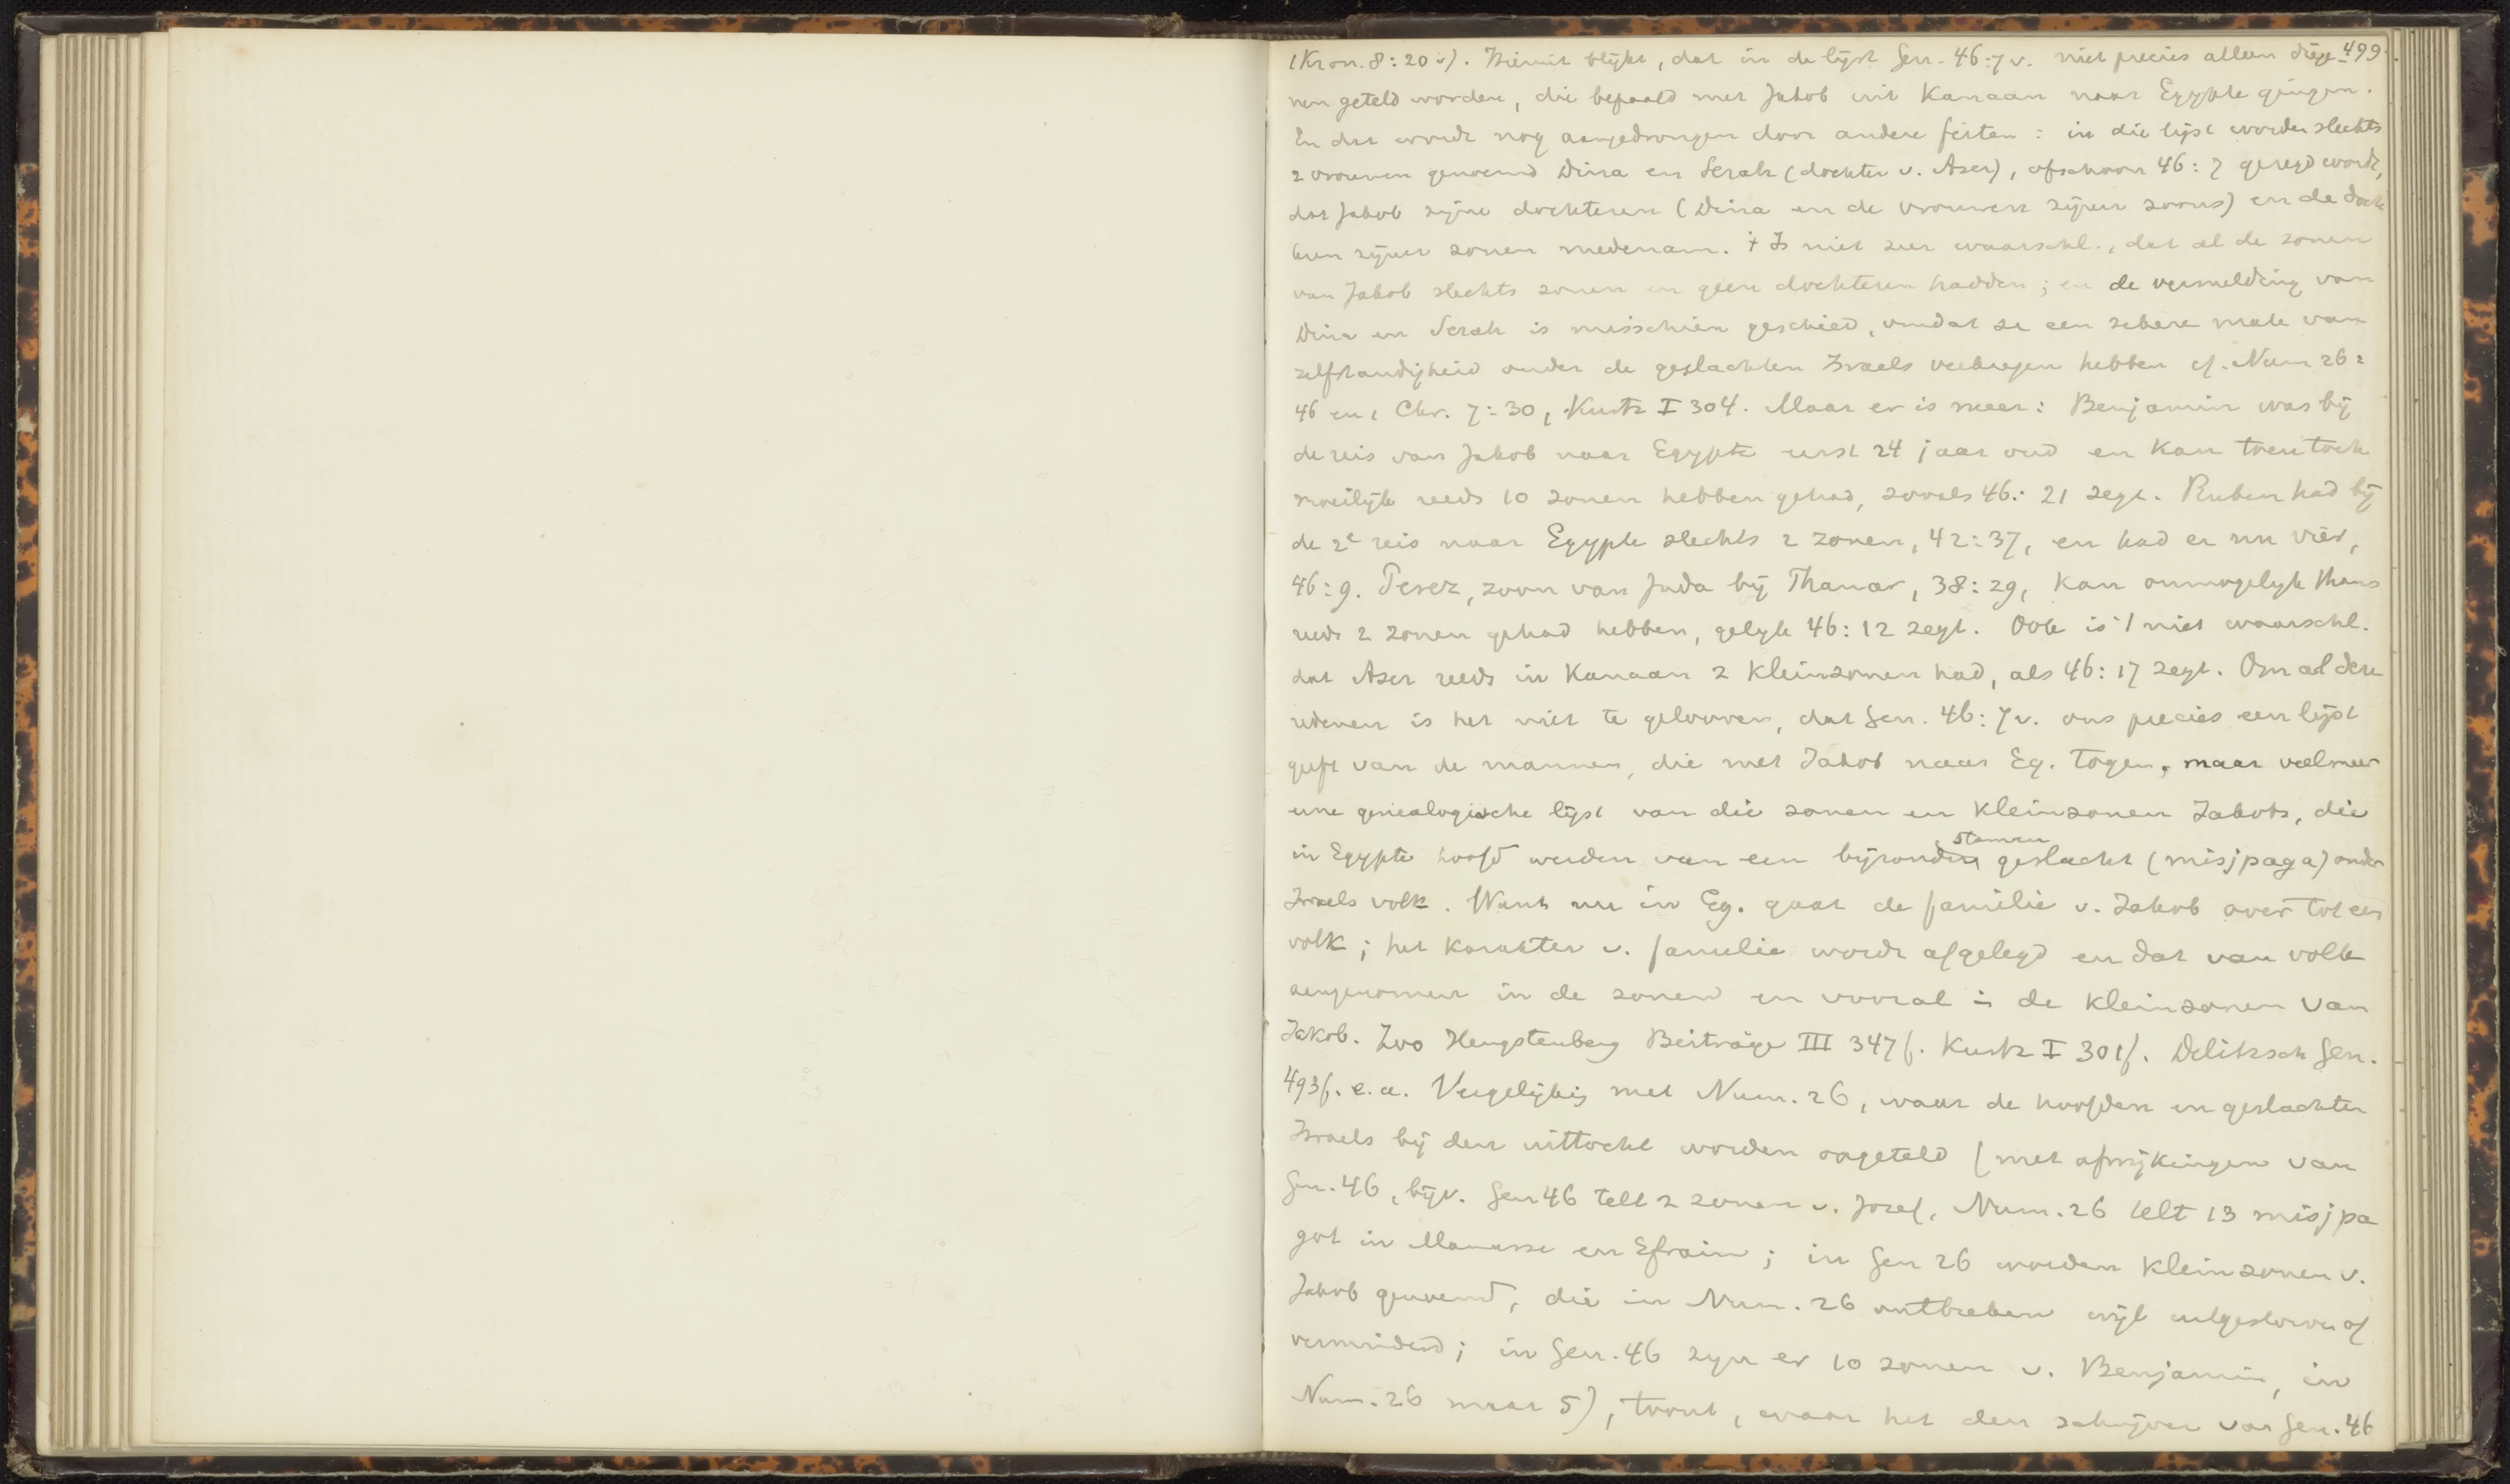 499.
1 Kron. 8:20 v). Hieruit blijkt, dat in de lijst Gen. 46:7 v. niet precies alleen diege-
nen geteld worden, die bepaald met Jakob uit Kanaan naar Egypte gingen.
En dat wordt nog aangedrongen door andere feiten: in die lijst worden slechts
2 vrouwen genoemd Dina en Serah (dochter v. Aser), ofschoon 46:7 gezegd wordt,
dat Jakob zijne dochteren (Dina en de vrouwen zijner zoons) en de doch
teren zijner zonen medenam. 't Is niet zeer waarschl., dat al de zonen
van Jakob slechts zonen en geen dochteren hadden; en de vermelding van
Dina en Serah is misschien geschied, omdat ze een zekere mate van
zelfstandigheid onder de geslachten Israels verkregen hebben cf. Num 26:
46 en 1 Chr. 7:30, Kurtz I 304. Maar er is meer: Benjamin was bij
de reis van Jakob naar Egypte eerst 24 jaar oud en kan toen toch
moeilijk reeds 10 zonen hebben gehad, zooals 46:21 zegt. Ruben had bij
de 2e reis naar Egypte slechts 2 zonen, 42:37, en had er nu vier,
46:9. Perez, zoon van Juda bij Thamar, 38:29, kan onmogelijk thans
reeds 2 zonen gehad hebben, gelijk 46:12 zegt. Ook is 't niet waarschl.
dat Aser reeds in Kanaan 2 kleinzonen had, als 46:17 zegt. Om al deze
redenen is het niet te gelooven, dat Gen. 46:7 v. ons precies een lijst
geeft van de mannen, die met Jakob naar Eg. togen, maar veelmeer
eene genealogische lijst van die zonen en kleinzonen Jakobs, die
in Egypte hoofd werden van een bijzonder geslacht (misjpaga) onder
stamen
Israels volk. Want nu in Eg. gaat de familie v. Jakob over tot een
volk; het karakter v. familie wordt afgelegd en dat van volk
aangenomen in de zonen en vooral in de kleinzonen van
Jakob. Zoo Hengstenberg Beiträge III 347f. Kurtz I 301f. Delitzsch Gen.
493f. e.a. Vergelijking met Num. 26, waar de hoofden en geslachten
Israels bij den uittocht worden opgeteld (met afwijkingen van
Gen. 46, bijv. Gen 46 telt 2 zonen v. Jozef, Num. 26 telt 13 misjpa
got in Manasse en Efraim; in Gen 26 worden kleinzonen v.
Jakob genoemd, die in Num. 26 ontbreken wijl uitgestorven of
verminderd; in Gen. 46 zijn er 10 zonen v. Benjamin, in
Num. 26 maar 5), toont, waar het den schrijver van Gen. 46